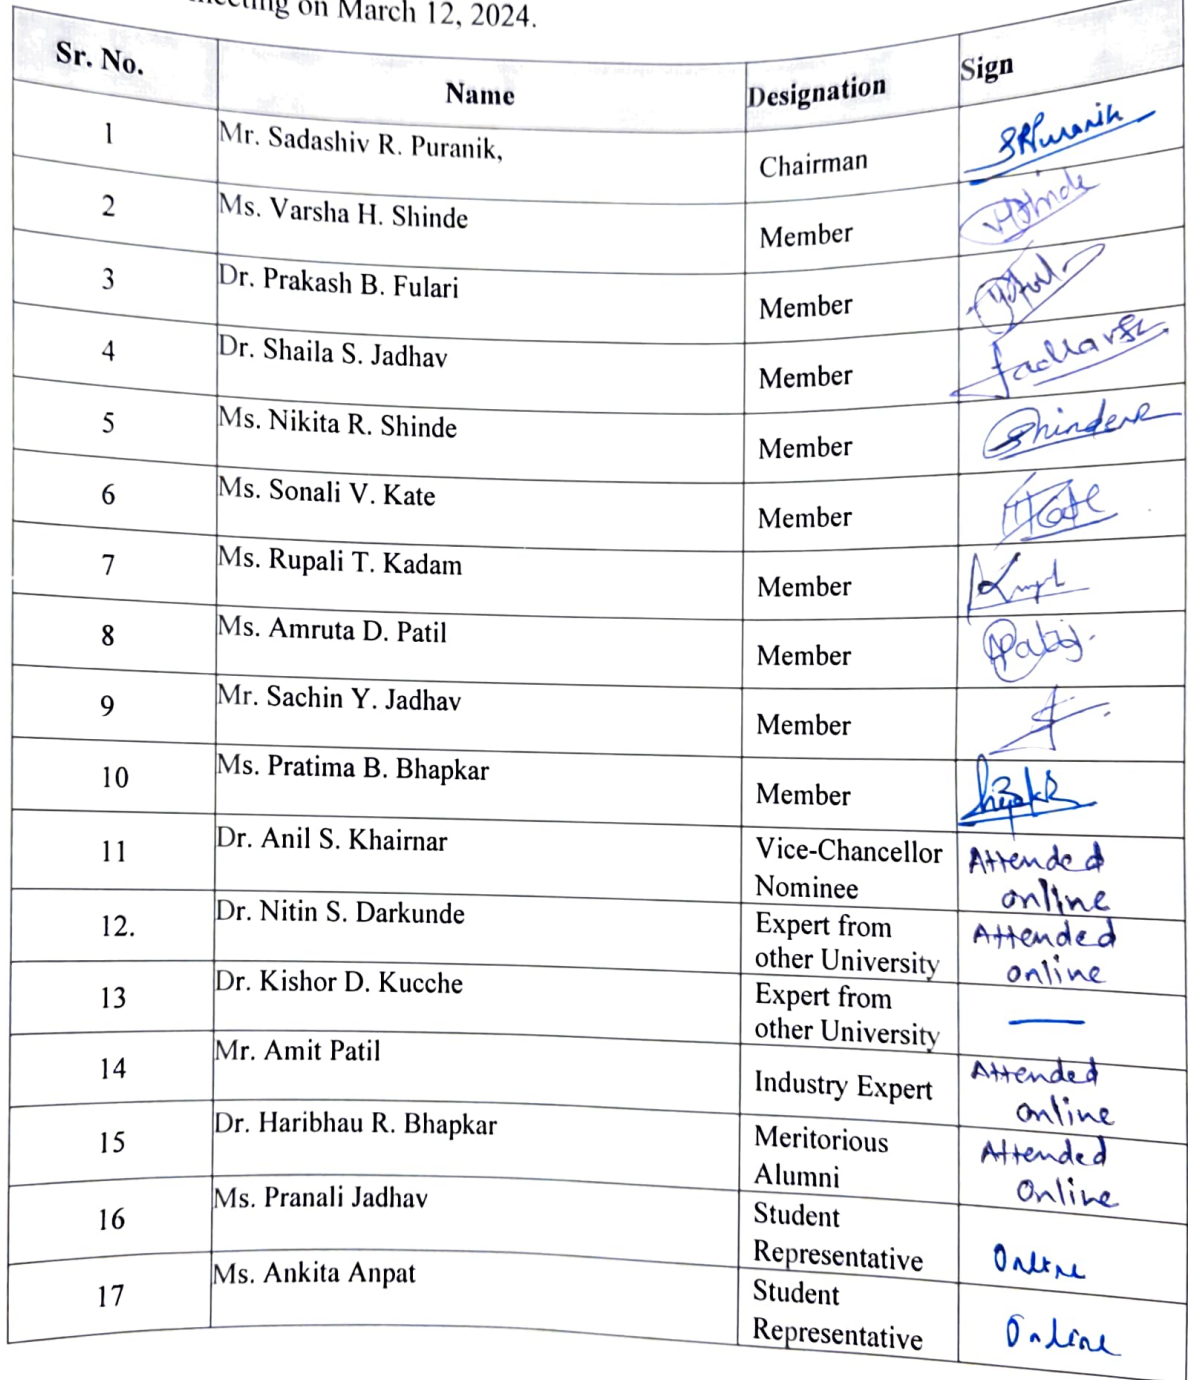 meeting on March 12, 2024.
Sr. No. Name Designation Sign
1 Mr. Sadashiv R. Puranik, Chairman SRPuranik
2 Ms. Varsha H. Shinde Member
3 Dr. Prakash B. Fulari Member
4 Dr. Shaila S. Jadhav Member
5 Ms. Nikita R. Shinde Member
6 Ms. Sonali V. Kate Member
7 Ms. Rupali T. Kadam Member
8 Ms. Amruta D. Patil Member
9 Mr. Sachin Y. Jadhav Member
10 Ms. Pratima B. Bhapkar Member
11 Dr. Anil S. Khairnar Vice-Chancellor Attended
Nominee online
12. Dr. Nitin S. Darkunde Expert from Attended
other University online
13 Dr. Kishor D. Kucche Expert from
other University
14 Mr. Amit Patil Industry Expert Attended
online
15 Dr. Haribhau R. Bhapkar Meritorious Attended
Alumni Online
16 Ms. Pranali Jadhav Student
Representative Online
17 Ms. Ankita Anpat Student
Representative Online